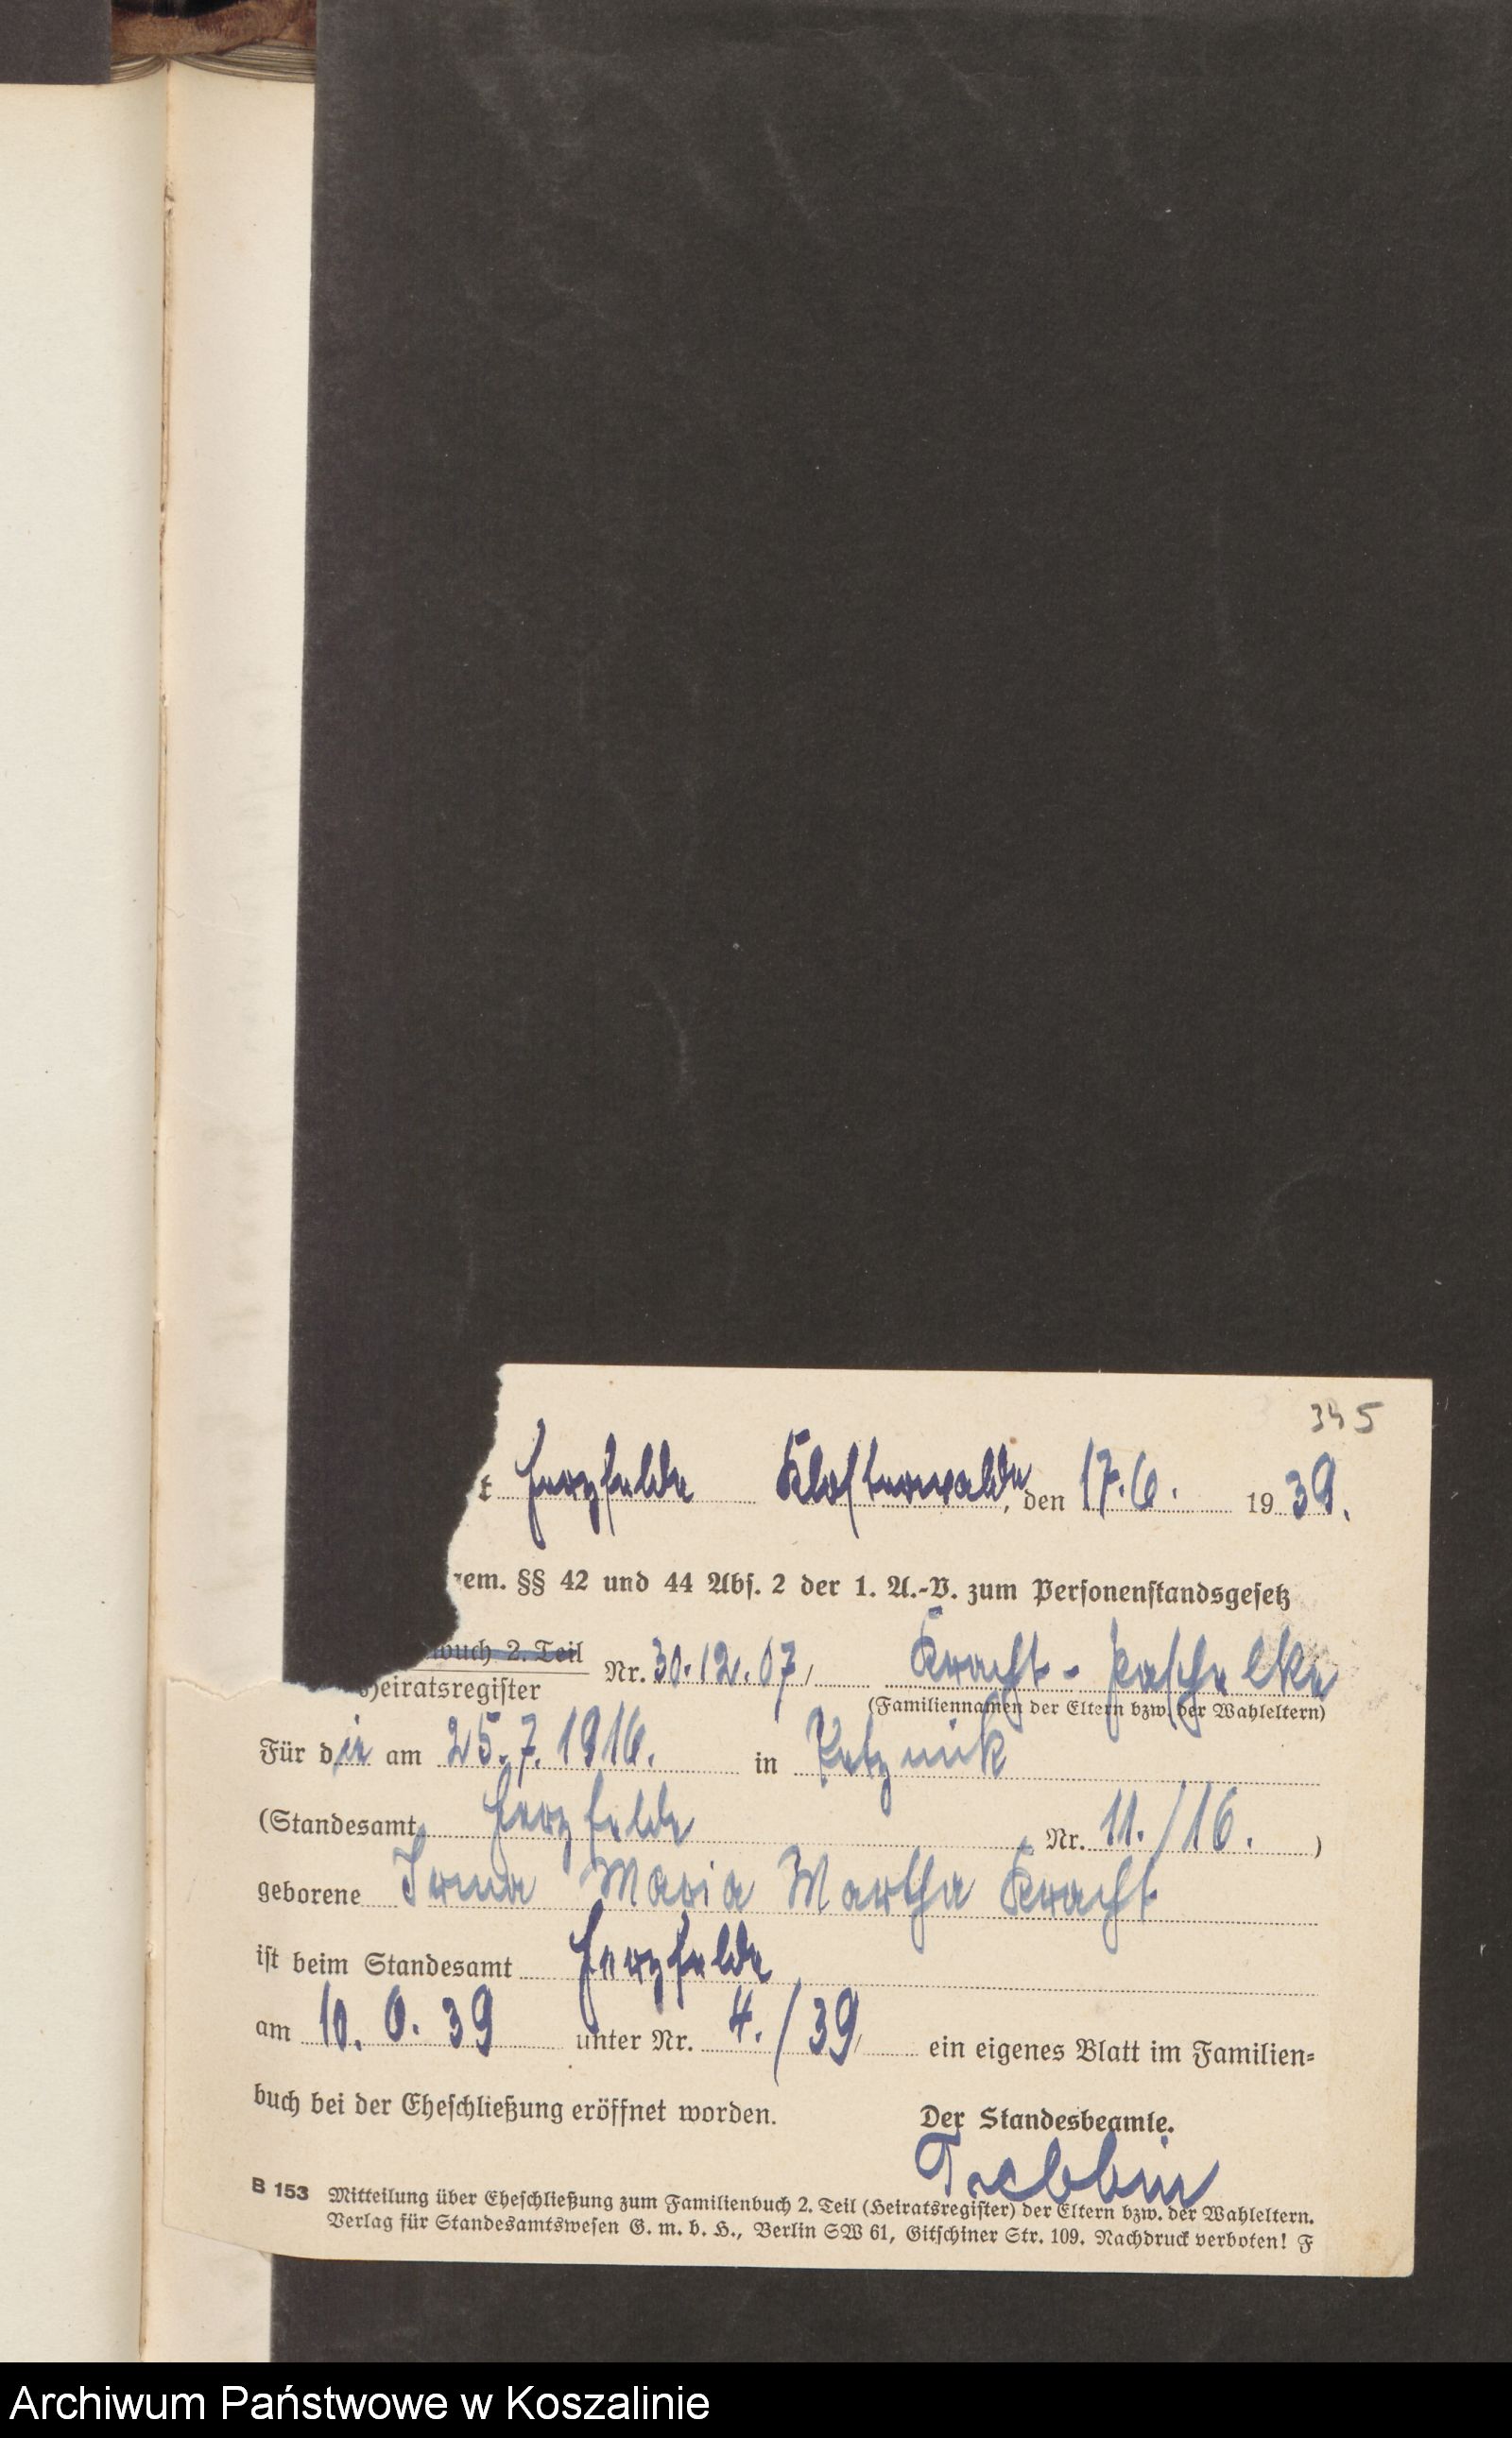 345
t Herzfelde Klosterwalde, den 17.6. 1939.
gem. §§ 42 und 44 Abs. 2 der 1. A.-V. zum Personenstandsgesetz
buch 2. Teil
Heiratsregister Nr. 30.12.07, Kracht - Paschelke
(Familiennamen der Eltern bzw. der Wahleltern)
Für die am 25.7.1916. in
(Standesamt Herzfelde Nr. 11./16. )
geborene Irma Maria Martha Kracht
ist beim Standesamt Herzfelde
am 10. 6. 39 unter Nr. 4./39, ein eigenes Blatt im Familien-
buch bei der Eheschließung eröffnet worden.
Der Standesbeamte.
Trebbin
B 153 Mitteilung über Eheschließung zum Familienbuch 2. Teil (Heiratsregister) der Eltern bzw. der Wahleltern.
Verlag für Standesamtswesen G. m. b. H., Berlin SW 61, Gitschiner Str. 109. Nachdruck verboten! F
Archiwum Państwowe w Koszalinie